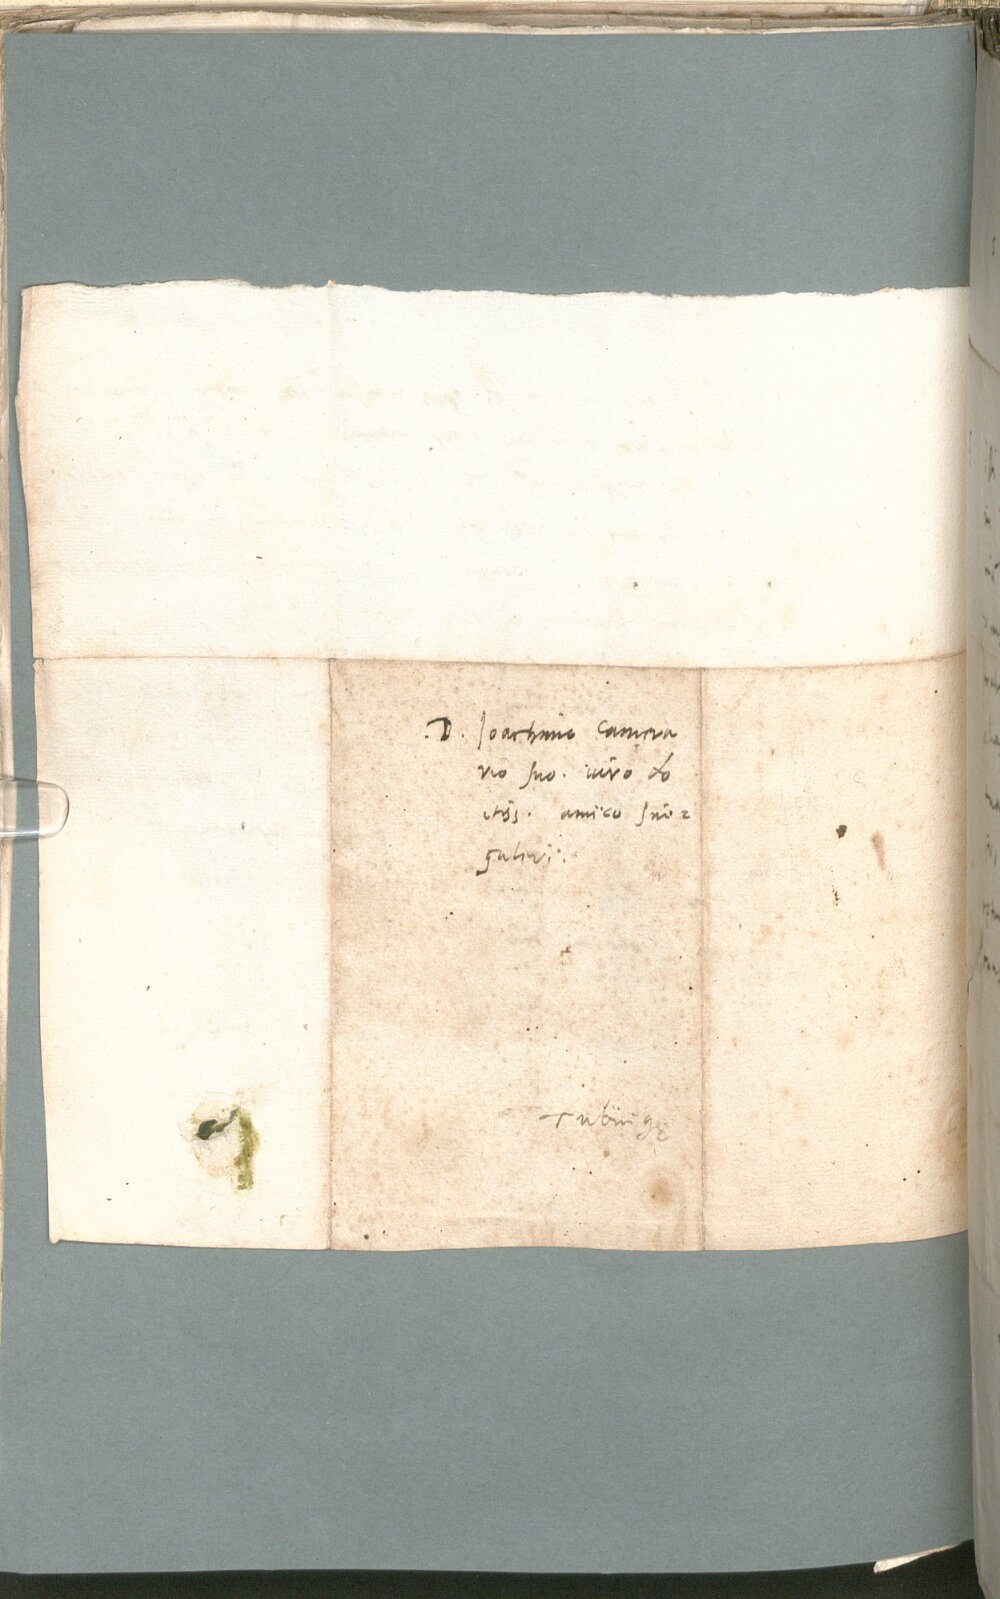 .D. Joachimo Camera
rio suo. uiro do
ctiss. amico sin⸗
gulari.
Tubingę